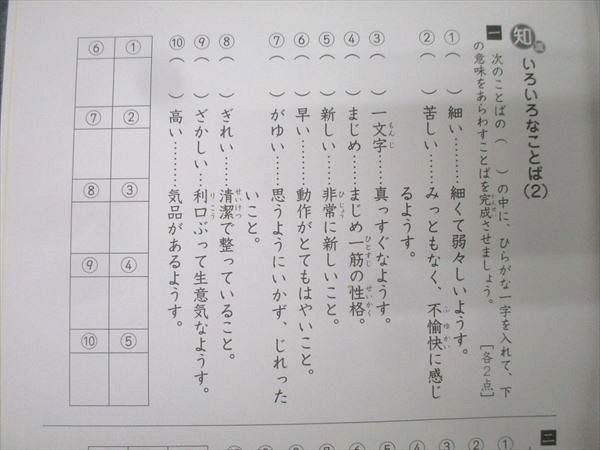 知 いろいろなことば(2)
一 次のことばの( )の中に、ひらがな一字を入れて、下
の意味をあらわすことばを完成させましょう。 [各2点]
①( )細い………細くて弱々しいようす。
②( )苦しい……みっともなく、不愉快に感じ
るようす。
③( )一文字……真っすぐなようす。
④( )まじめ……まじめ一筋の性格。
⑤( )新しい……非常に新しいこと。
⑥( )早い………動作がとてもはやいこと。
⑦( )がゆい……思うようにいかず、じれった
いこと。
⑧( )ぎれい……清潔で整っていること。
⑨( )ざかしい…利口ぶって生意気なようす。
⑩( )高い………気品があるようす。
① ② ③ ④ ⑤
⑥ ⑦ ⑧ ⑨ ⑩
二
① ② ③ ④ ⑤ ⑥ ⑦ ⑧ ⑨ ⑩